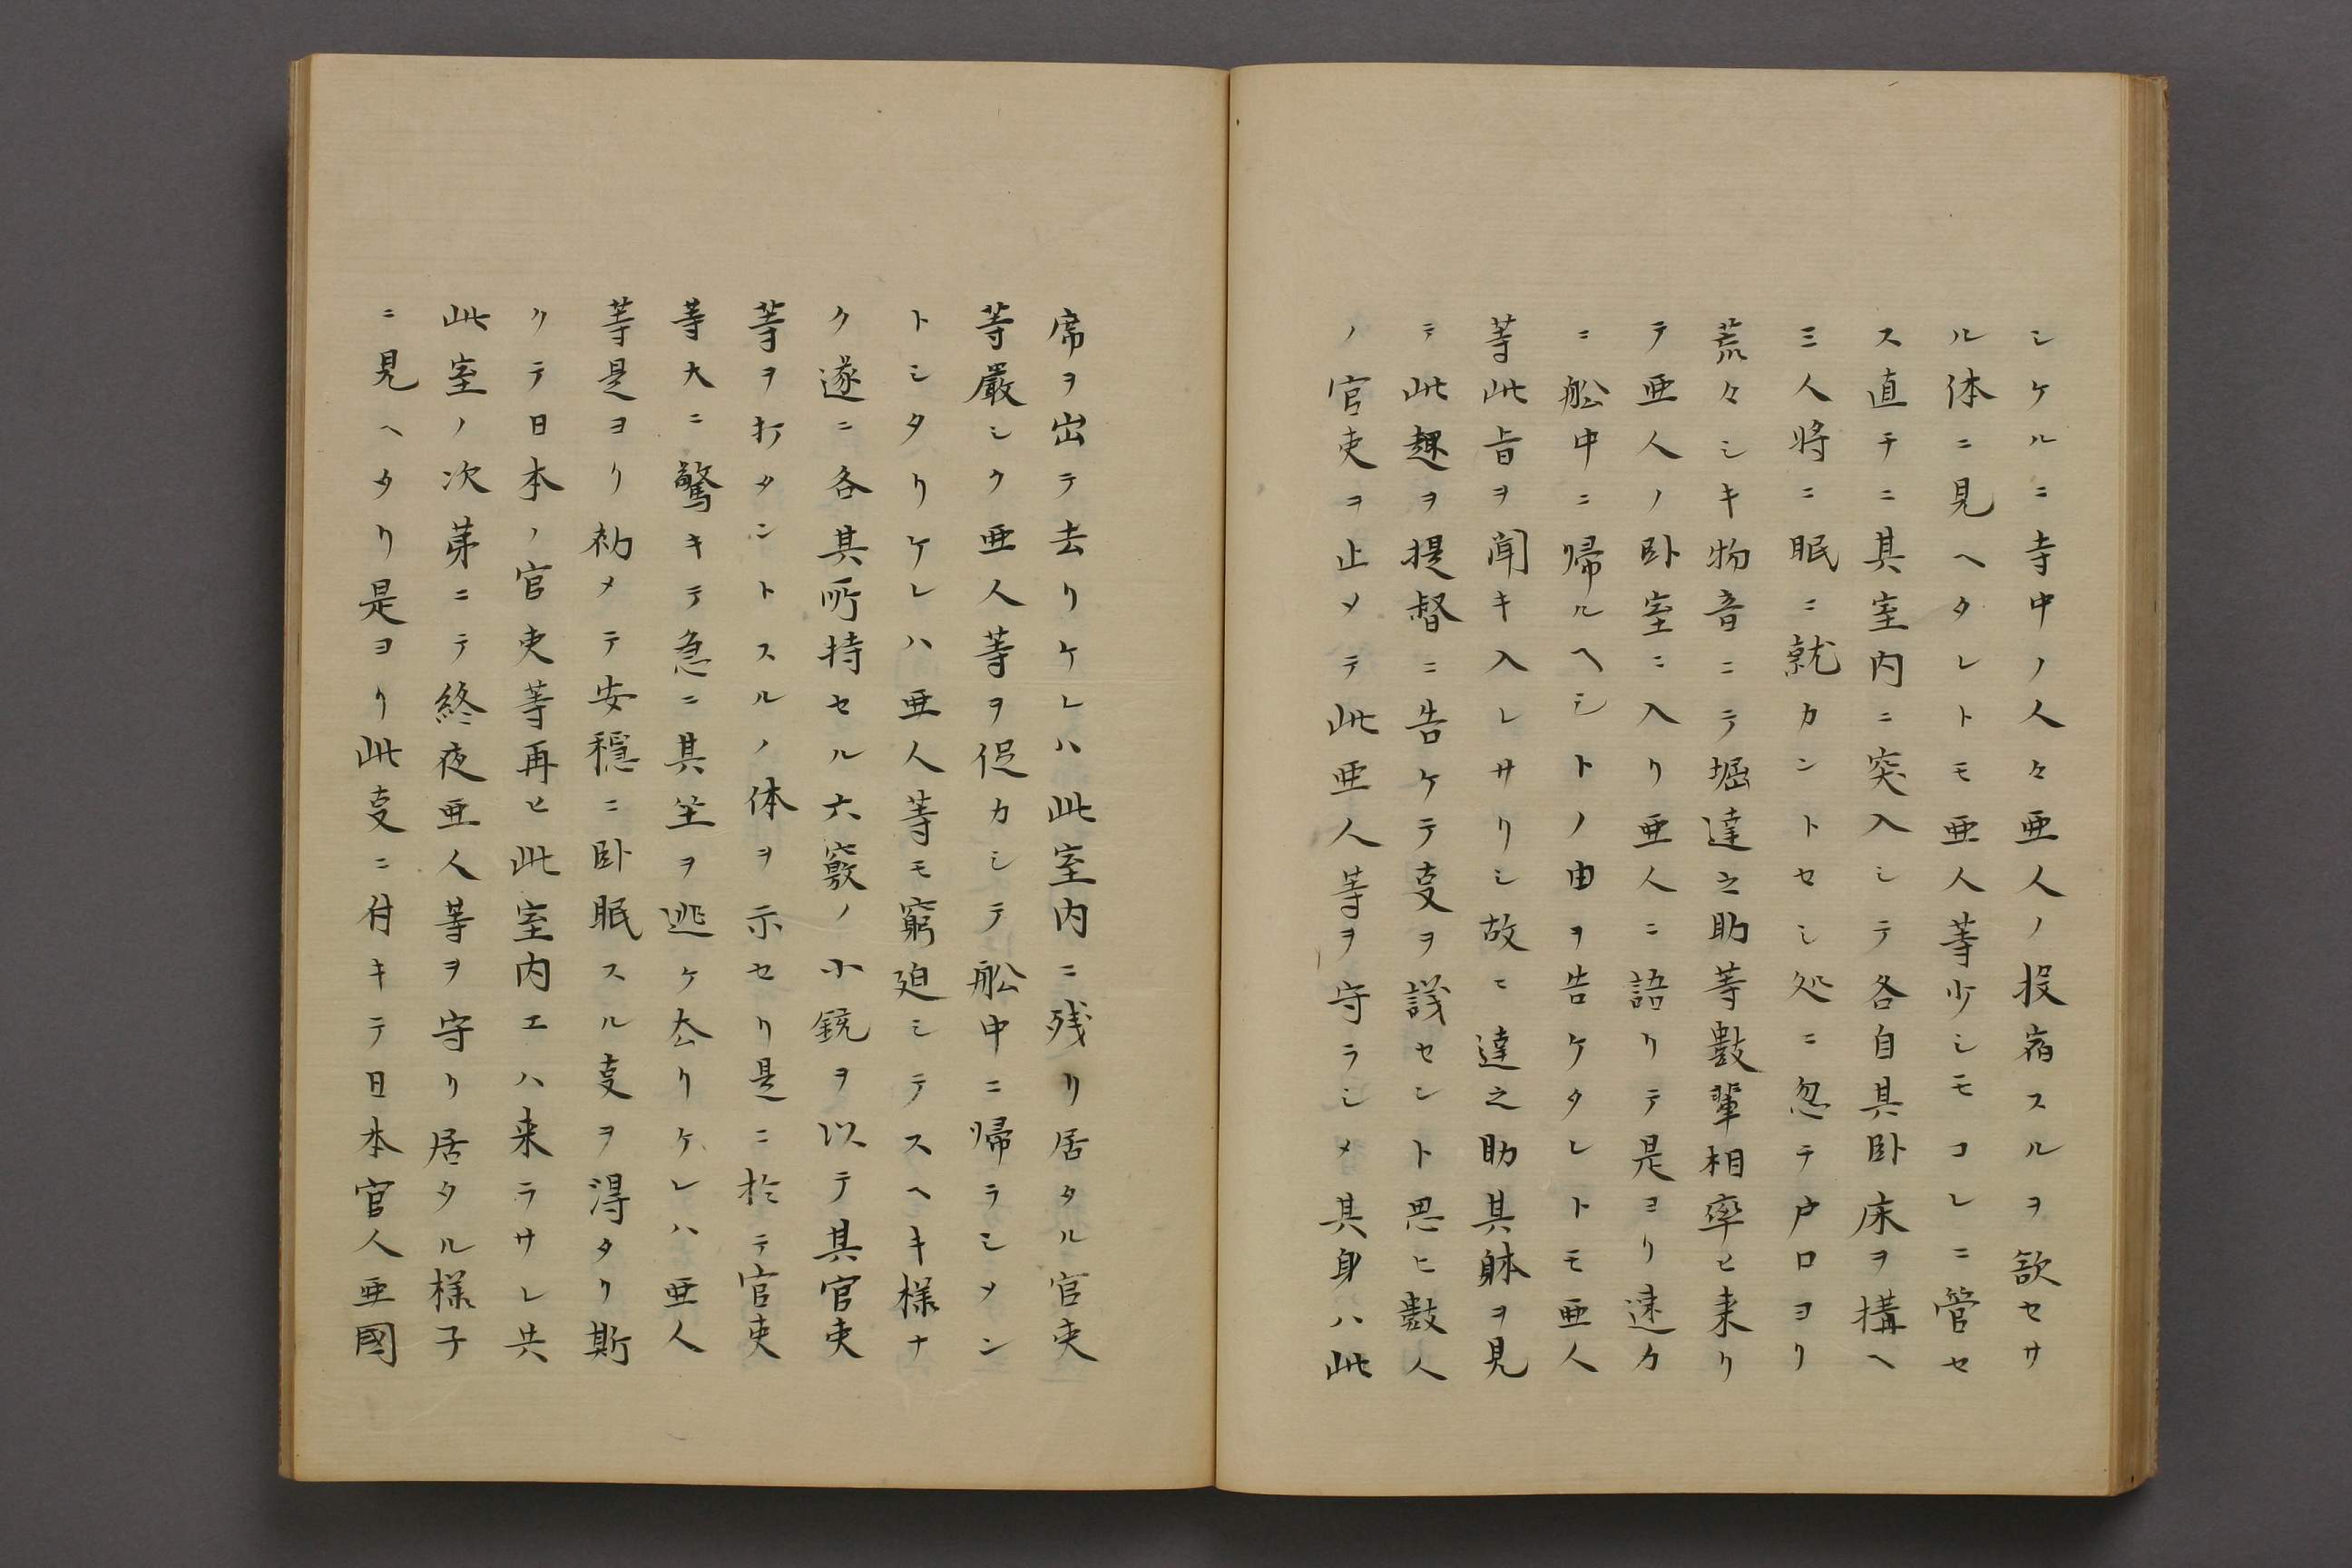 シケルニ寺中ノ人々亜人ノ投宿スルヲ欲セサ
ル体ニ見ヘタレトモ亜人等少シモコレニ管セ
ス直チニ其室内ニ突入シテ各自其卧床ヲ構ヘ
三人将ニ眠ニ就カントセシ処ニ忽テ戸口ヨリ
荒々シキ物音ニテ堀達之助等數輩相率ヒ来リ
テ亜人ノ卧室ニ入リ亜人ニ語リテ是ヨリ速カ
ニ舩中ニ帰ルヘシトノ由ヲ告ケタレトモ亜人
等此旨ヲ聞キ入レサリシ故ニ達之助其躰ヲ見
テ此趣ヲ提督ニ告ケテ㕝ヲ議セント思ヒ數人
ノ官吏ヲ止メテ此亜人等ヲ守ラシメ其身ハ此
席ヲ出テ去リケレハ此室内ニ残リ居タル官吏
等嚴シク亜人等ヲ促カシテ舩中ニ帰ラシメン
トシタリケレハ亜人等モ窮迫シテスヘキ様ナ
ク遂ニ各其所持セル六竅ノ小銃ヲ以テ其官吏
等ヲ打タントスルノ体ヲ示セリ是ニ於テ官吏
等大ニ驚キテ急ニ其坐ヲ逃ケ去リケレハ亜人
等是ヨリ初メテ安穏ニ卧眠スル㕝ヲ得タリ斯
クテ日本ノ官吏等再ヒ此室内エハ来ラサレ共
此室ノ次第ニテ終夜亜人等ヲ守リ居タル様子
ニ見ヘタリ是ヨリ此㕝ニ付キテ日本官人亜國